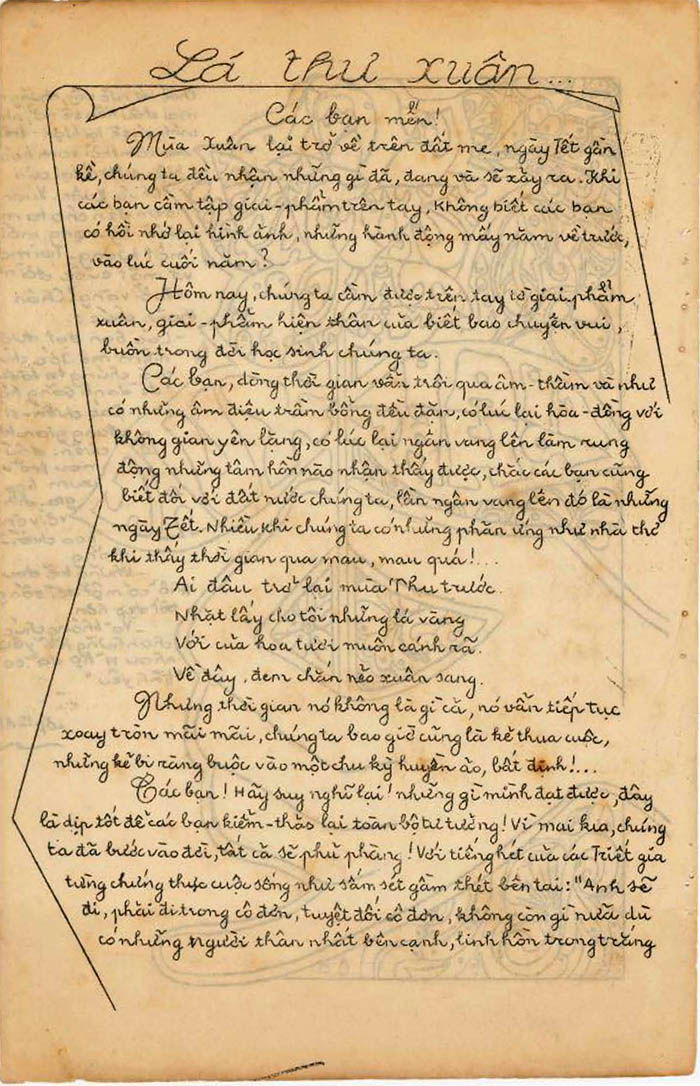 Lá thư xuân...
Các bạn mến!
Mùa Xuân lại trở về trên đất mẹ, ngày Tết gần
kề, chúng ta đều nhận những gì đã, đang và sẽ xảy ra. Khi
các bạn cầm tập giai-phẩm trên tay, không biết các bạn
có hồi nhớ lại hình ảnh, những hành động mấy năm về trước,
vào lúc cuối năm?
Hôm nay, chúng ta cầm được trên tay tờ giai-phẩm
xuân, giai-phẩm hiện thân của biết bao chuyện vui,
buồn trong đời học sinh chúng ta.
Các bạn, dòng thời gian vẫn trôi qua âm-thầm và như
có những âm điệu trầm bổng đều đặn, có lúc lại hòa-đồng với
không gian yên lặng, có lúc lại ngân vang lên làm rung
động những tâm hồn nào nhận thấy được, chắc các bạn cũng
biết đối với đất nước chúng ta, lần ngân vang lên đó là những
ngày Tết. Nhiều khi chúng ta có những phản ứng như nhà thơ
khi thấy thời gian qua mau, mau quá!...
Ai đâu trở lại mùa Thu trước.
Nhặt lấy cho tôi những lá vàng
Với của hoa tươi muôn cánh rã.
Về đây, đem chắn nẻo xuân sang.
Nhưng thời gian nó không là gì cả, nó vẫn tiếp tục
xoay tròn mãi mãi, chúng ta bao giờ cũng là kẻ thua cuộc,
những kẻ bị ràng buộc vào một chu kỳ huyền ảo, bất định!...
Các bạn! Hãy suy nghĩ lại! những gì mình đạt được, đây
là dịp tốt để các bạn kiểm-thảo lại toàn bộ tư tưởng! Vì mai kia, chúng
ta đã bước vào đời, tất cả sẽ phũ phàng! Với tiếng hét của các Triết gia
từng chứng thực cuộc sống như sấm sét gầm thét bên tai: "Anh sẽ
đi, phải đi trong cô đơn, tuyệt đối cô đơn, không còn gì nữa dù
có những người thân nhất bên cạnh, linh hồn trong trắng